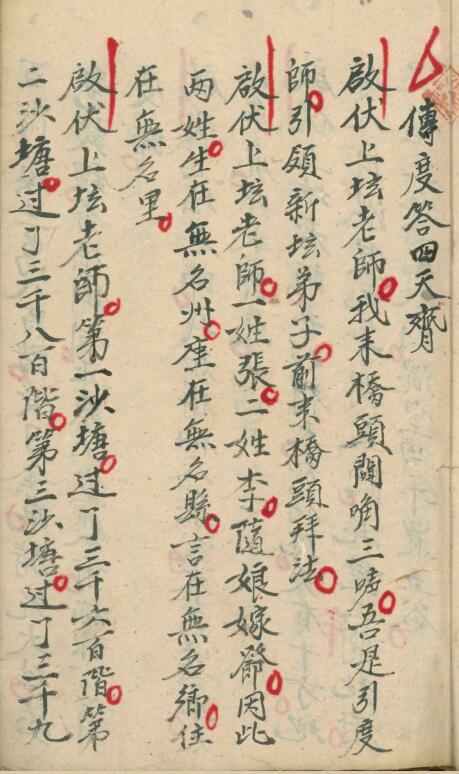 傳度答四天齊
啟伏上坛老師我来橋頭闻角三啨吾是引度
師引領新坛弟子前来橋頭拜法
啟伏上坛老師一姓張二姓李隨娘嫁爺因此
两姓生在無名州座在無名縣言在無名鄉住
在無名里
啟伏上坛老師第一沙塘过了三千六百階第
二沙塘过了三千八百階第三沙塘过了三千九